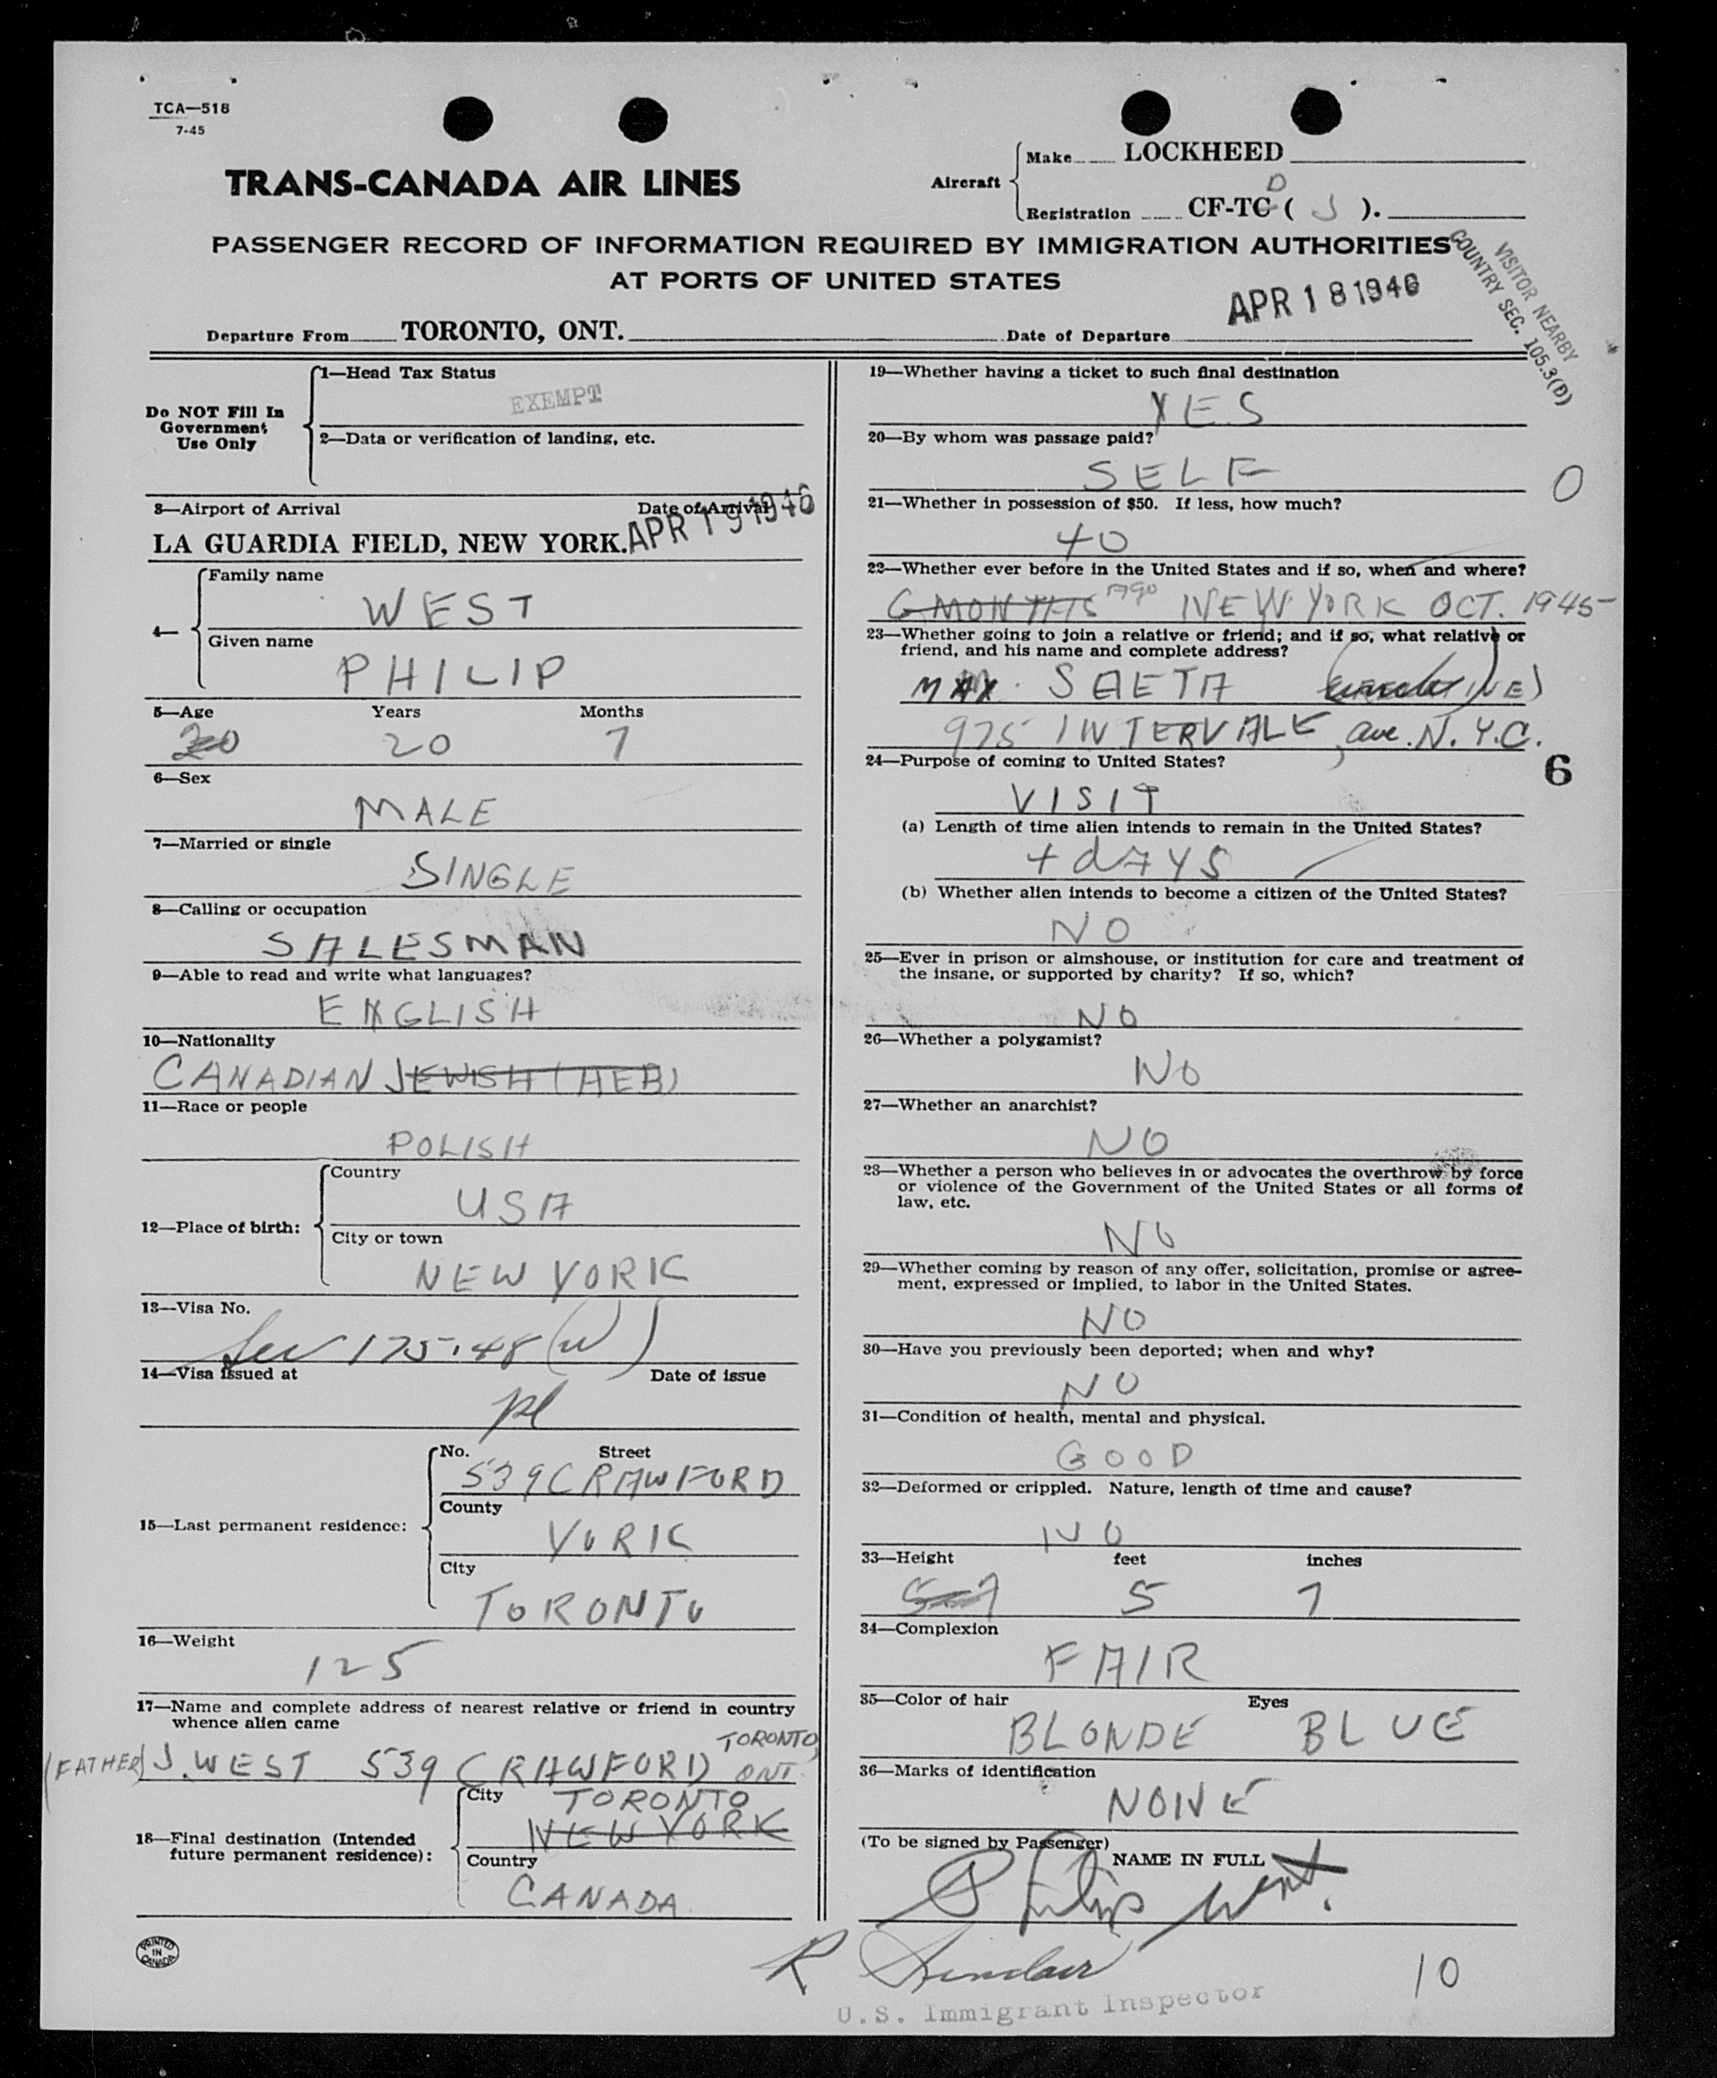 TCA—518
7-45
TRANS-CANADA AIR LINES
Aircraft
Make LOCKHEED
D
Registration CF-TC ( J ).
PASSENGER RECORD OF INFORMATION REQUIRED BY IMMIGRATION AUTHORITIES
AT PORTS OF UNITED STATES
VISITOR NEARBY
COUNTRY SEC. 105.3(D)
Departure From TORONTO, ONT. Date of Departure APR 18 1946
Do NOT Fill In
Government
Use Only
1—Head Tax Status
EXEMPT
2—Data or verification of landing, etc.
3—Airport of Arrival Date of Arrival
LA GUARDIA FIELD, NEW YORK. APR 19 1946
4—
Family name
WEST
Given name
PHILIP
5—Age Years Months
20 20 7
6—Sex
MALE
7—Married or single
SINGLE
8—Calling or occupation
SALESMAN
9—Able to read and write what languages?
ENGLISH
10—Nationality
CANADIAN JEWISH (HEB)
11—Race or people
POLISH
12—Place of birth:
Country
USA
City or town
NEW YORK
13—Visa No.
Sec 175.48 (w)
14—Visa issued at Date of issue
pl
15—Last permanent residence:
No. Street
539 CRAWFORD
County
YORK
City
TORONTO
16—Weight
125
17—Name and complete address of nearest relative or friend in country
whence alien came
(FATHER) J. WEST 539 CRAWFORD TORONTO ONT.
18—Final destination (Intended
future permanent residence):
City TORONTO
NEW YORK
Country
CANADA
PRINTED
IN
CANADA
19—Whether having a ticket to such final destination
YES
20—By whom was passage paid?
SELF
0
21—Whether in possession of $50. If less, how much?
40
22—Whether ever before in the United States and if so, when and where?
6 MONTHS ago NEW YORK OCT. 1945
23—Whether going to join a relative or friend; and if so, what relative or
friend, and his name and complete address?
MAX SAETA (uncle)
975 INTERVALE, ave. N.Y.C.
6
24—Purpose of coming to United States?
VISIT
(a) Length of time alien intends to remain in the United States?
4 dAYS
(b) Whether alien intends to become a citizen of the United States?
NO
25—Ever in prison or almshouse, or institution for care and treatment of
the insane, or supported by charity? If so, which?
NO
26—Whether a polygamist?
NO
27—Whether an anarchist?
NO
28—Whether a person who believes in or advocates the overthrow by force
or violence of the Government of the United States or all forms of
law, etc.
NO
29—Whether coming by reason of any offer, solicitation, promise or agree-
ment, expressed or implied, to labor in the United States.
NO
30—Have you previously been deported; when and why?
NO
31—Condition of health, mental and physical.
GOOD
32—Deformed or crippled. Nature, length of time and cause?
NO
33—Height feet inches
5 7 5 7
34—Complexion
FAIR
35—Color of hair Eyes
BLONDE BLUE
36—Marks of identification
NONE
(To be signed by Passenger)
NAME IN FULL
Philip West.
R Sinclair
U.S. Immigrant Inspector
10